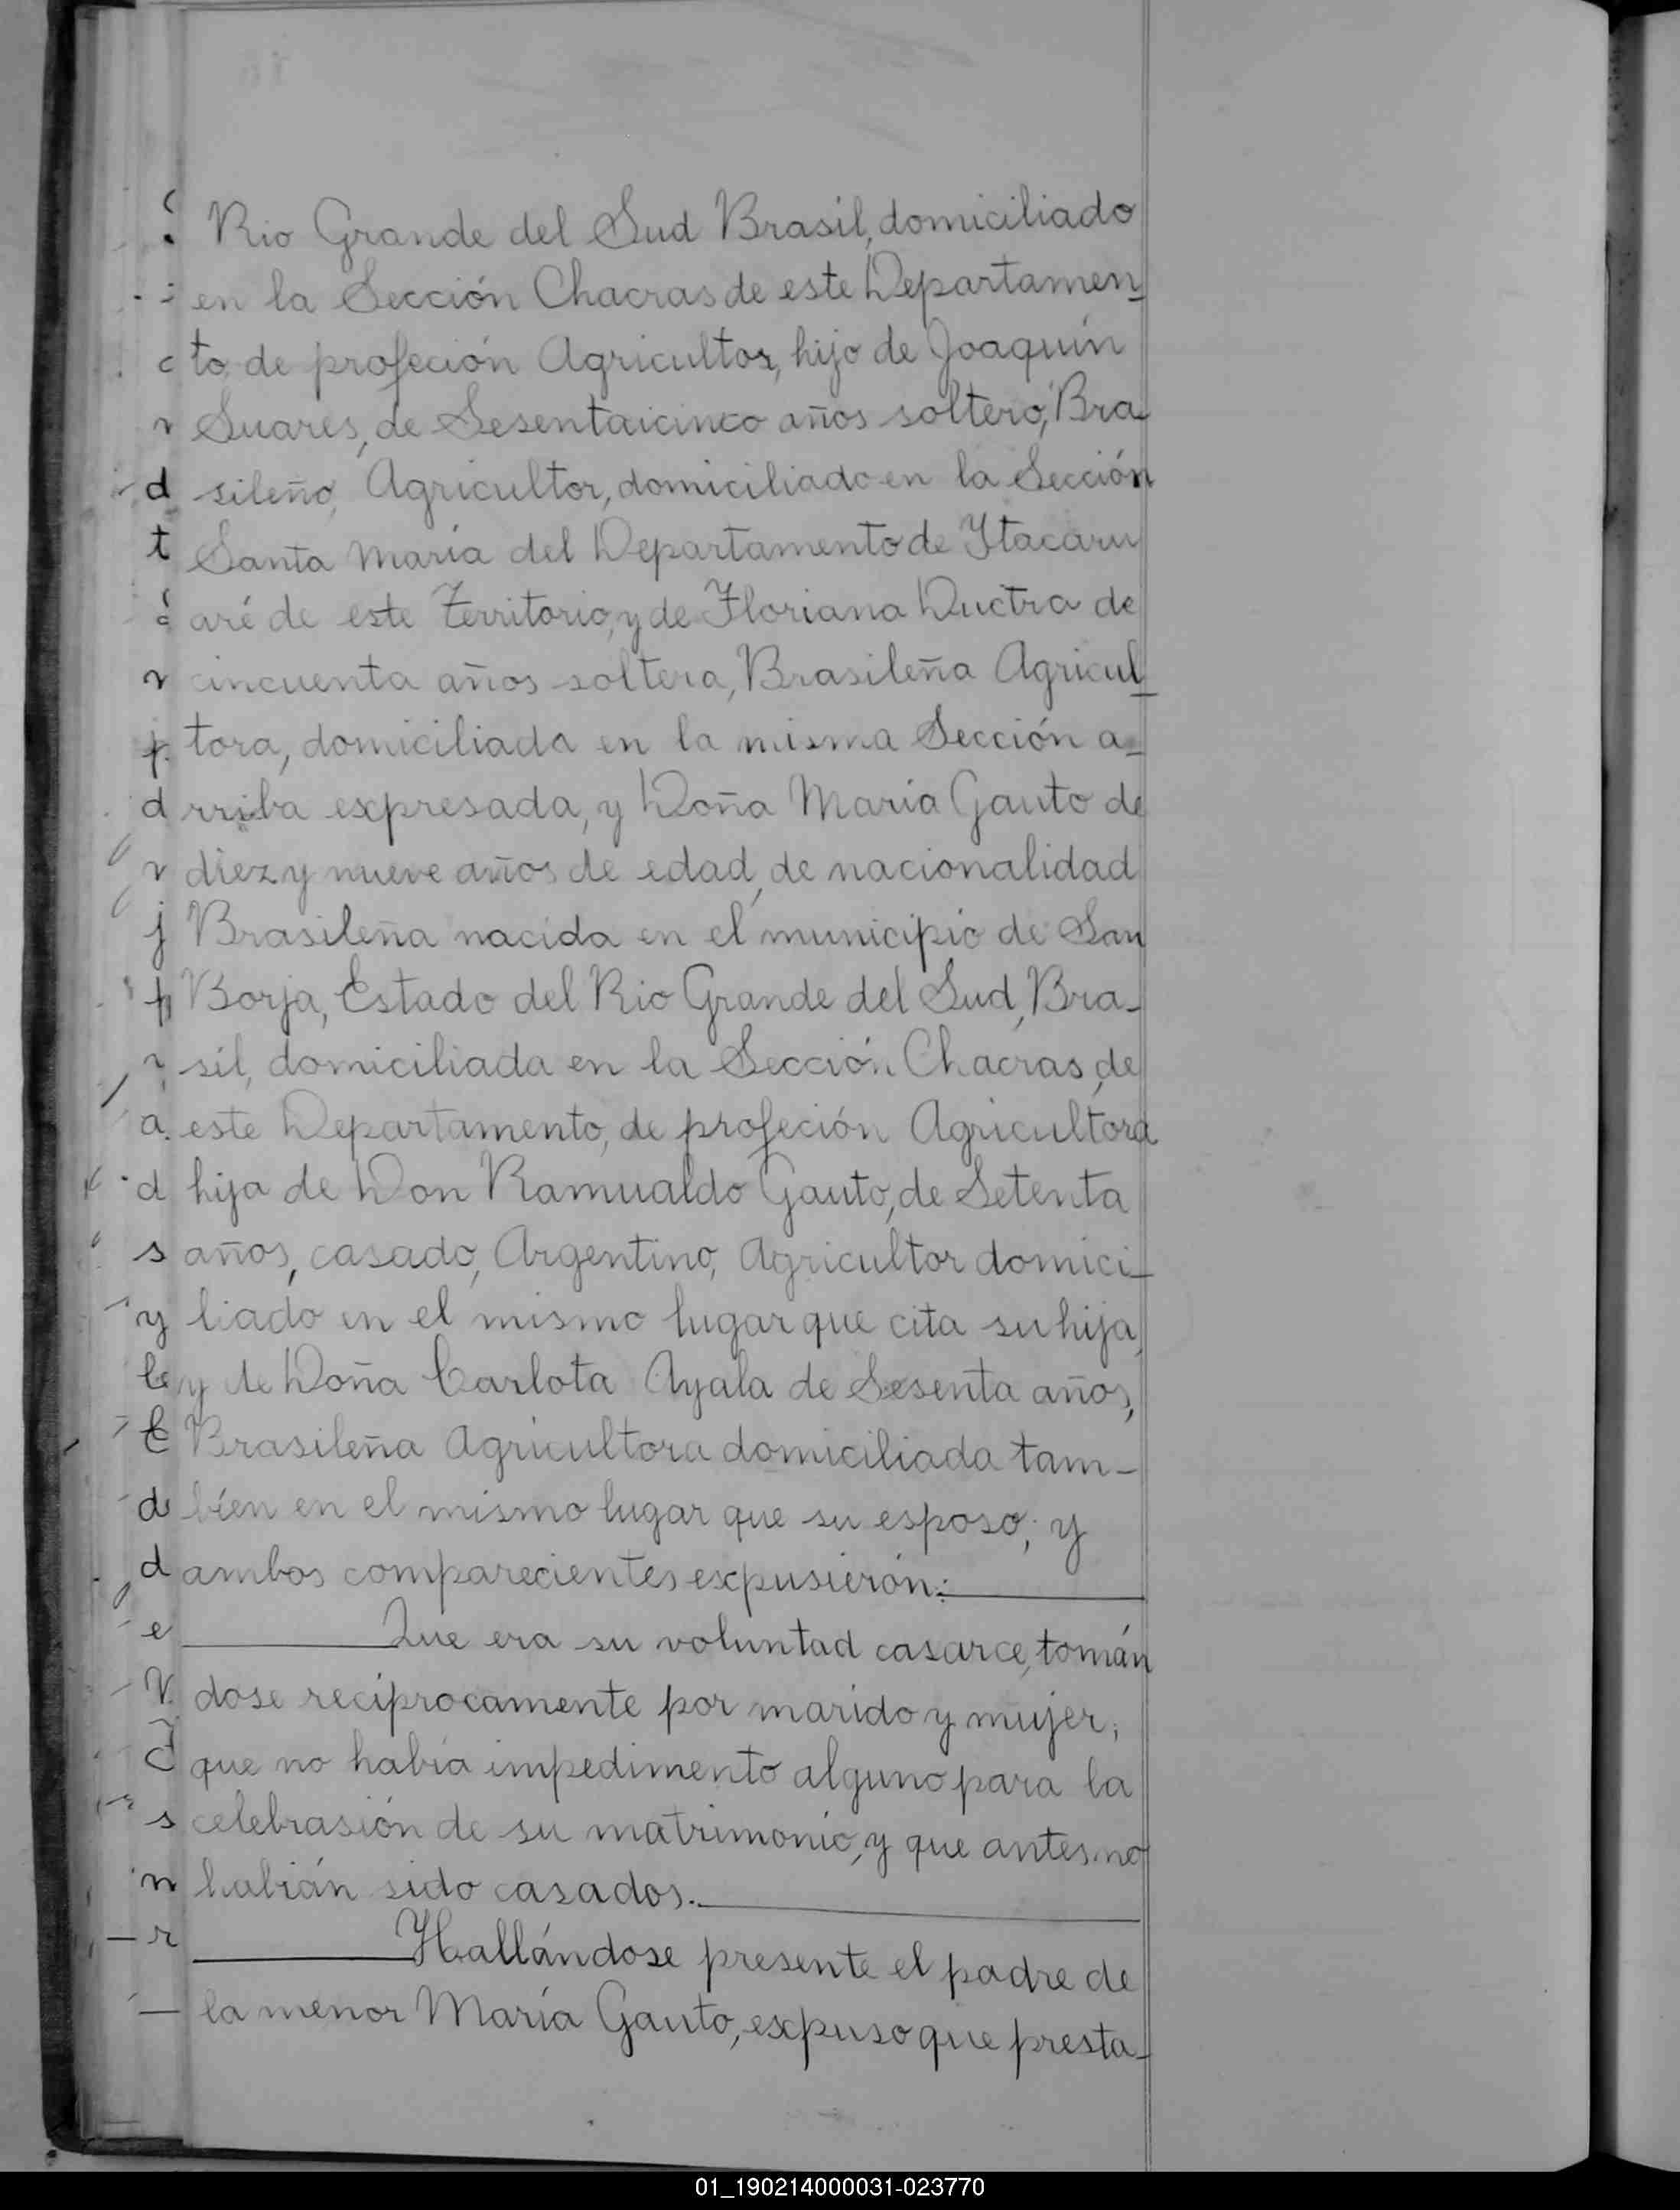 Rio Grande del Sud Brasil, domiciliado
en la Sección Chacras de este Departamen_
to de profeción Agricultor, hijo de Joaquín
Suares, de Sesentaicinco años soltero, Bra
sileño, Agricultor, domiciliado en la Sección
Santa María del Departamento de Ytacaru
aré de este Territorio, y de Floriana Ductra de
cincuenta años soltera, Brasileña Agricul_
tora, domiciliada en la misma Sección a_
rriba expresada, y Doña María Gauto de
diez y nueve años de edad, de nacionalidad
Brasileña nacida en el municipio de San
Borja, Estado del Rio Grande del Sud, Bra-
sil, domiciliada en la Sección Chacras, de
este Departamento, de profeción Agricultora
hija de Don Ramualdo Gauto, de Setenta
años, casado, Argentino, Agricultor domici_
liado en el mismo lugar que cita su hija,
y de Doña Carlota Ayala de Sesenta años,
Brasileña Agricultora domiciliada tam-
bién en el mismo lugar que su esposo; y
ambos comparecientes expusierón:
Que era su voluntad casarce, tomán
dose reciprocamente por marido y mujer;
que no había impedimento alguno para la
celebrasión de su matrimonio, y que antes no
habián sido casados.
Hallándose presente el padre de
la menor María Gauto, expuso que presta_
01_190214000031-023770